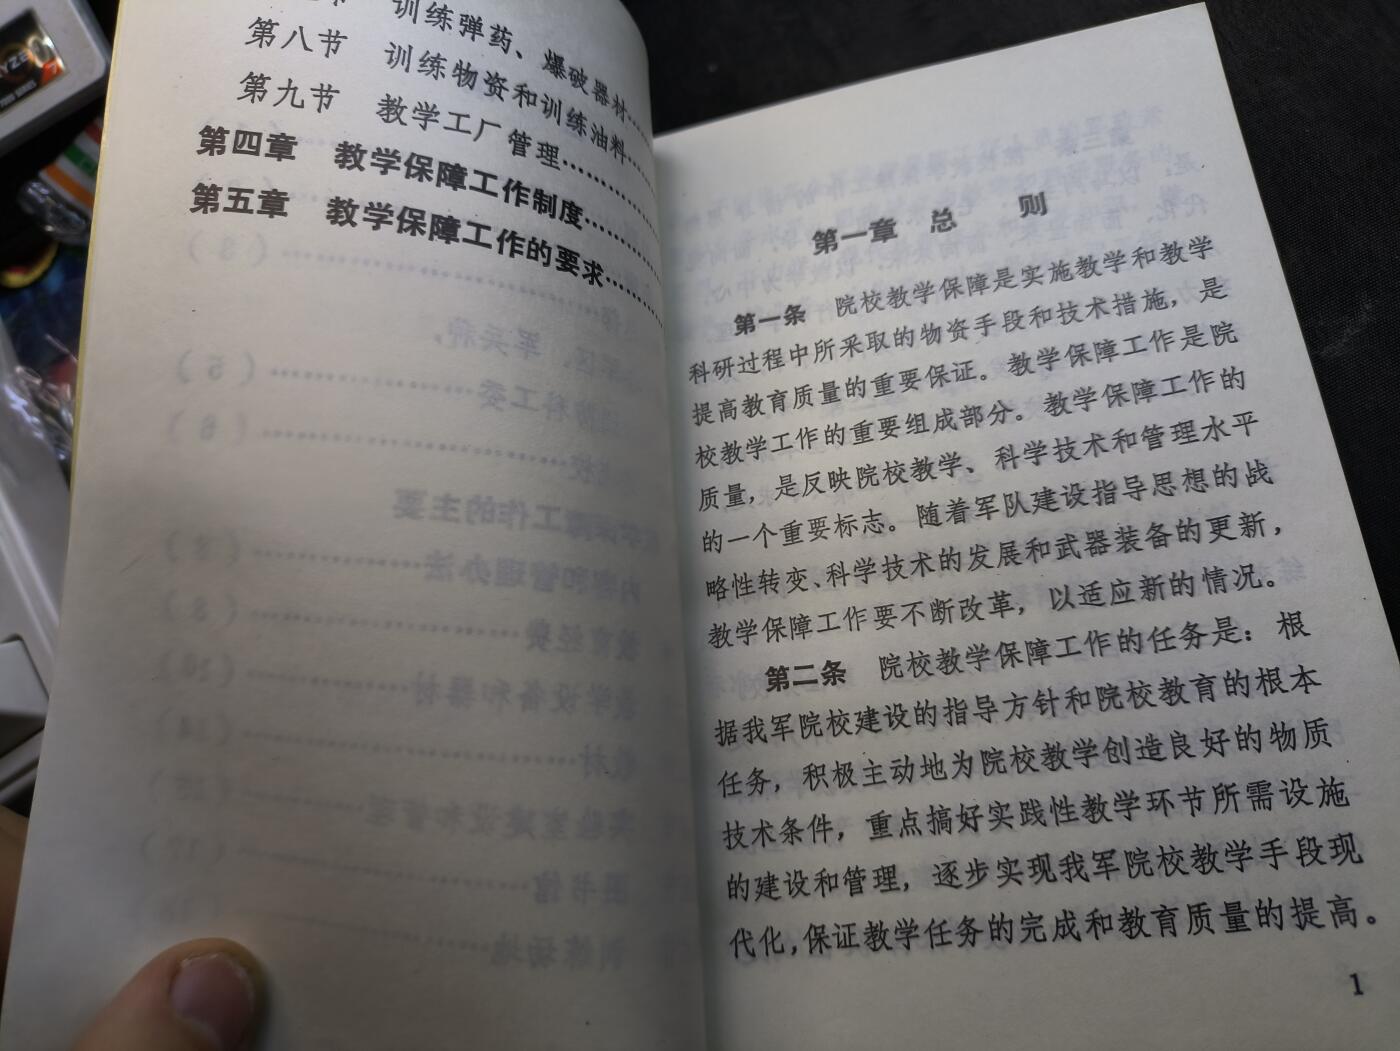 训练弹药、爆破器材……
第八节 训练物资和训练油料……
第九节 教学工厂管理……
第四章 教学保障工作制度……
第五章 教学保障工作的要求……
第一章 总 则
第一条 院校教学保障是实施教学和教学
科研过程中所采取的物资手段和技术措施，是
提高教育质量的重要保证。教学保障工作是院
校教学工作的重要组成部分。教学保障工作的
质量，是反映院校教学、科学技术和管理水平
的一个重要标志。随着军队建设指导思想的战
略性转变、科学技术的发展和武器装备的更新，
教学保障工作要不断改革，以适应新的情况。
第二条 院校教学保障工作的任务是：根
据我军院校建设的指导方针和院校教育的根本
任务，积极主动地为院校教学创造良好的物质
技术条件，重点搞好实践性教学环节所需设施
的建设和管理，逐步实现我军院校教学手段现
代化，保证教学任务的完成和教育质量的提高。
1